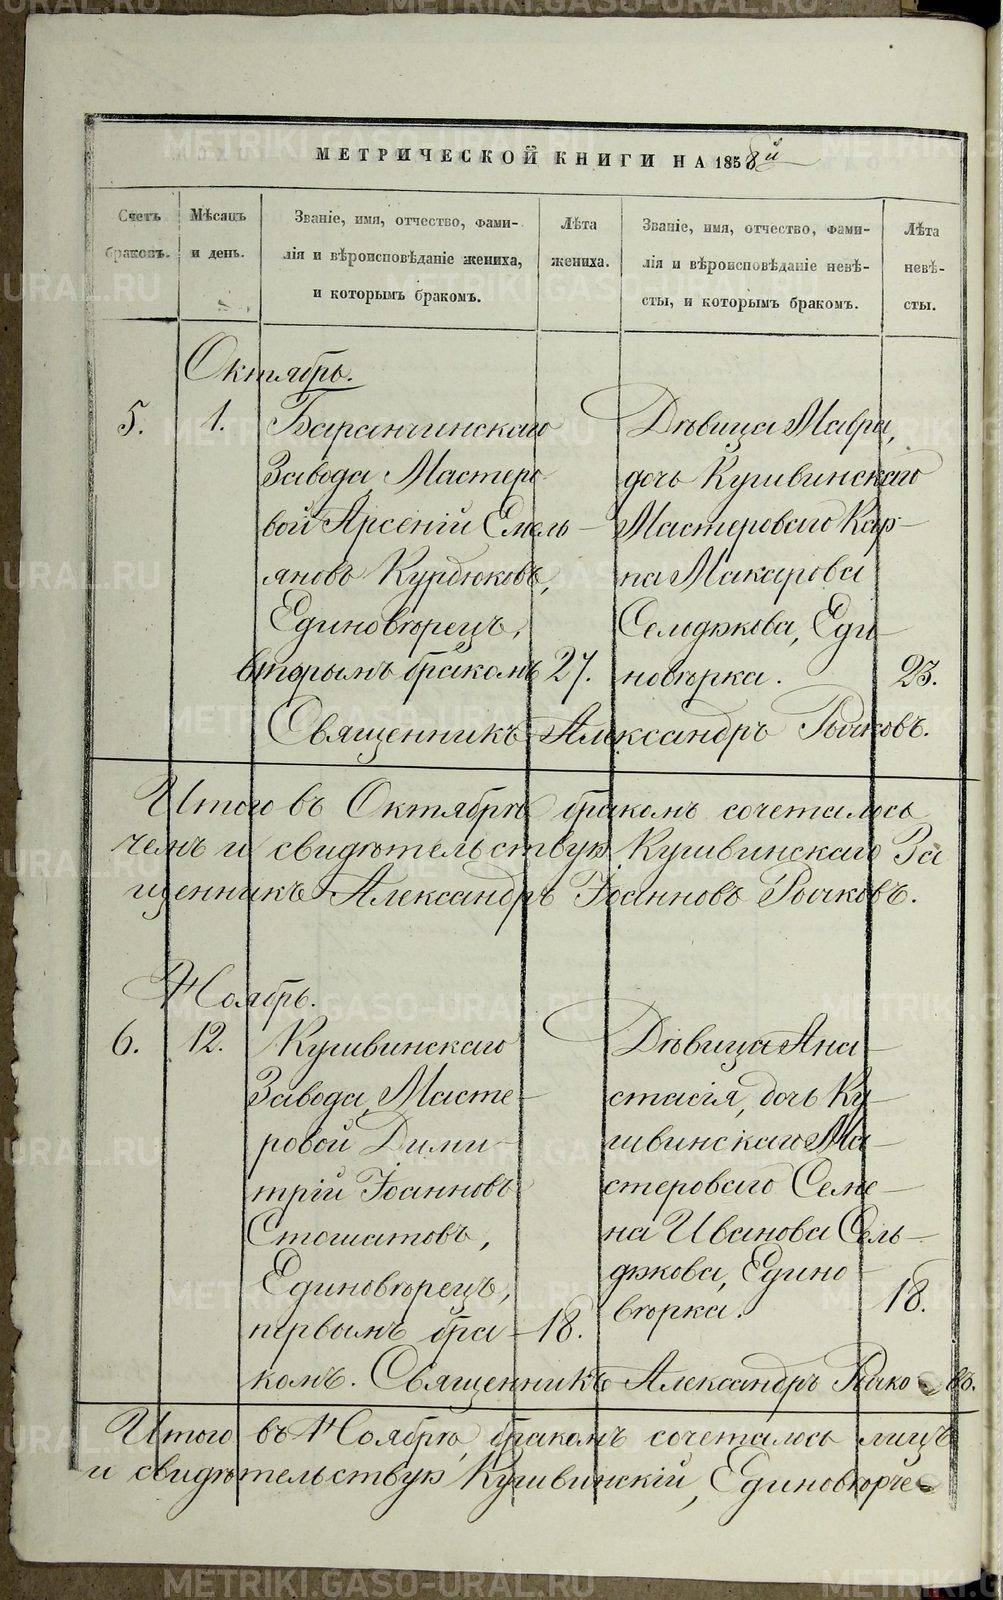 МЕТРИЧЕСКОЙ КНИГИ НА 1858й
Счетъ браковъ.
Мѣсяцъ и день.
Званіе, имя, отчество, фами-
лія и вѣроисповѣданіе жениха,
и которымъ бракомъ.
Лѣта жениха.
Званіе, имя, отчество, фами-
лія и вѣроисповѣданіе невѣ-
сты, и которымъ бракомъ.
Лѣта невѣ-
сты.
Октябрь.
5.
1.
Баранчинскаго
Завода Мастеро
вой Арсеній Емель-
яновъ Курдюковъ,
Единовѣрецъ,
вторымъ бракомъ
27.
Дѣвица Мавра,
дочь Кушвинскаго
Мастероваго Кар-
па Макарова
Сельдюкова, Еди-
новѣрка.
23.
Священникъ Александръ Рычковъ.
Итого въ Октябрѣ бракомъ сочеталось
чемъ и свидѣтельствую Кушвинскаго За
щенникъ Александръ Іоанновъ Рычковъ.
Ноябрь.
6.
12.
Кушвинскаго
Завода, Масте-
ровой Дими-
трій Іоанновъ
Стошатовъ,
Единовѣрецъ,
первымъ бра-
комъ.
18.
Дѣвица Ана-
стасія, дочь Ку-
швинскаго Ма-
стероваго Семе-
на Иванова Сель-
дюкова, Едино-
вѣрка.
18.
Священникъ Александръ Рычковъ.
Итого въ Ноябрѣ бракомъ сочеталось лицъ
и свидѣтельствую Кушвинскій, Единовѣрче-
METRIKI.GASO-URAL.RU